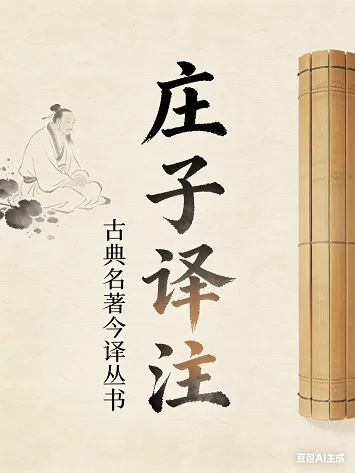 庄子译注
古典名著今译丛书
豆包AI生成